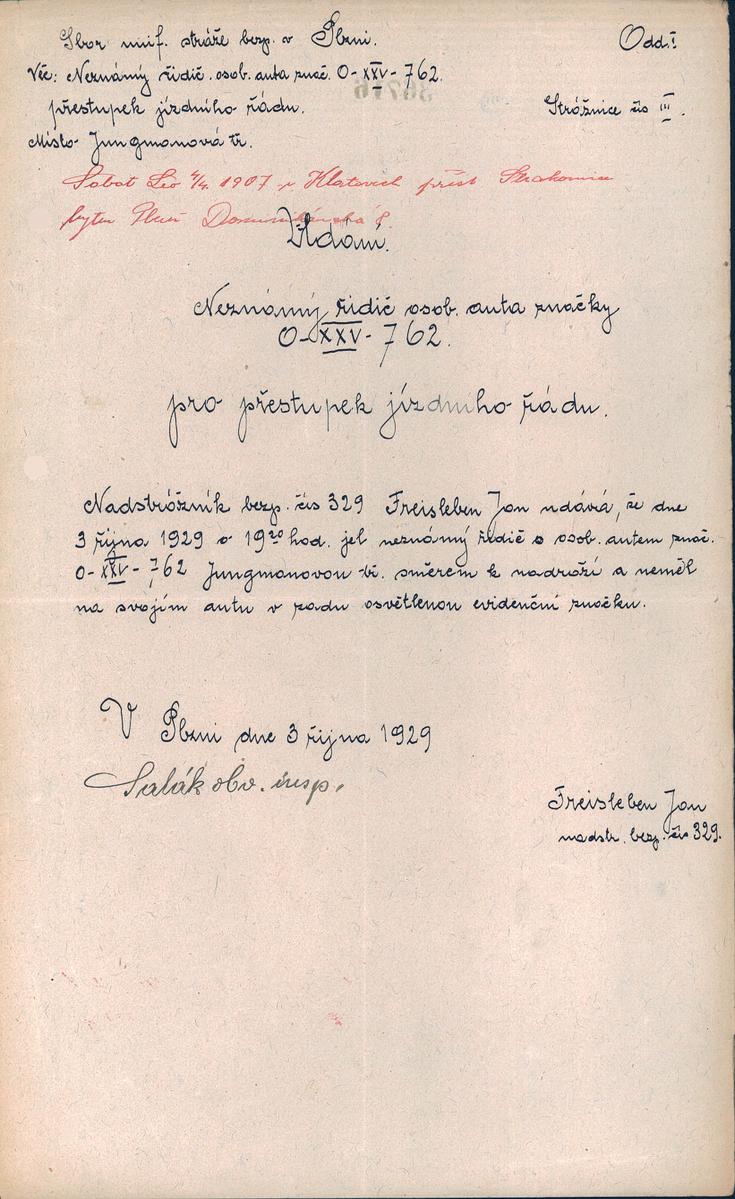 Sbor unif. stráže bezp. v Plzni.
Odd. I
Věc: Neznámý řidič. osob. auta znač. O-XXV-762.
přestupek jízdního řádu.
Strážnice čís III.
Místo Jungmanová tř.
Sabat Leo 4/4. 1907 v Klatovech přísl. Strakonice
bytem Plzeň Dominikánská 8.
Udání.
Neznámý řidič osob. auta značky
O-XXV-762.
pro přestupek jízdního řádu.
Nadstrážník bezp. čís 329 Freisleben Jan udává, že dne
3 října 1929 o 19²⁰ hod. jel neznámý řidič s osob. autem znač.
O-XXV-762 Jungmanovou tř. směrem k nádraží a neměl
na svojím autu v zadu osvětlenou evidenční značku.
V Plzni dne 3 října 1929
Salák obv. insp.
Freisleben Jan
nadstr. bezp. čís 329.